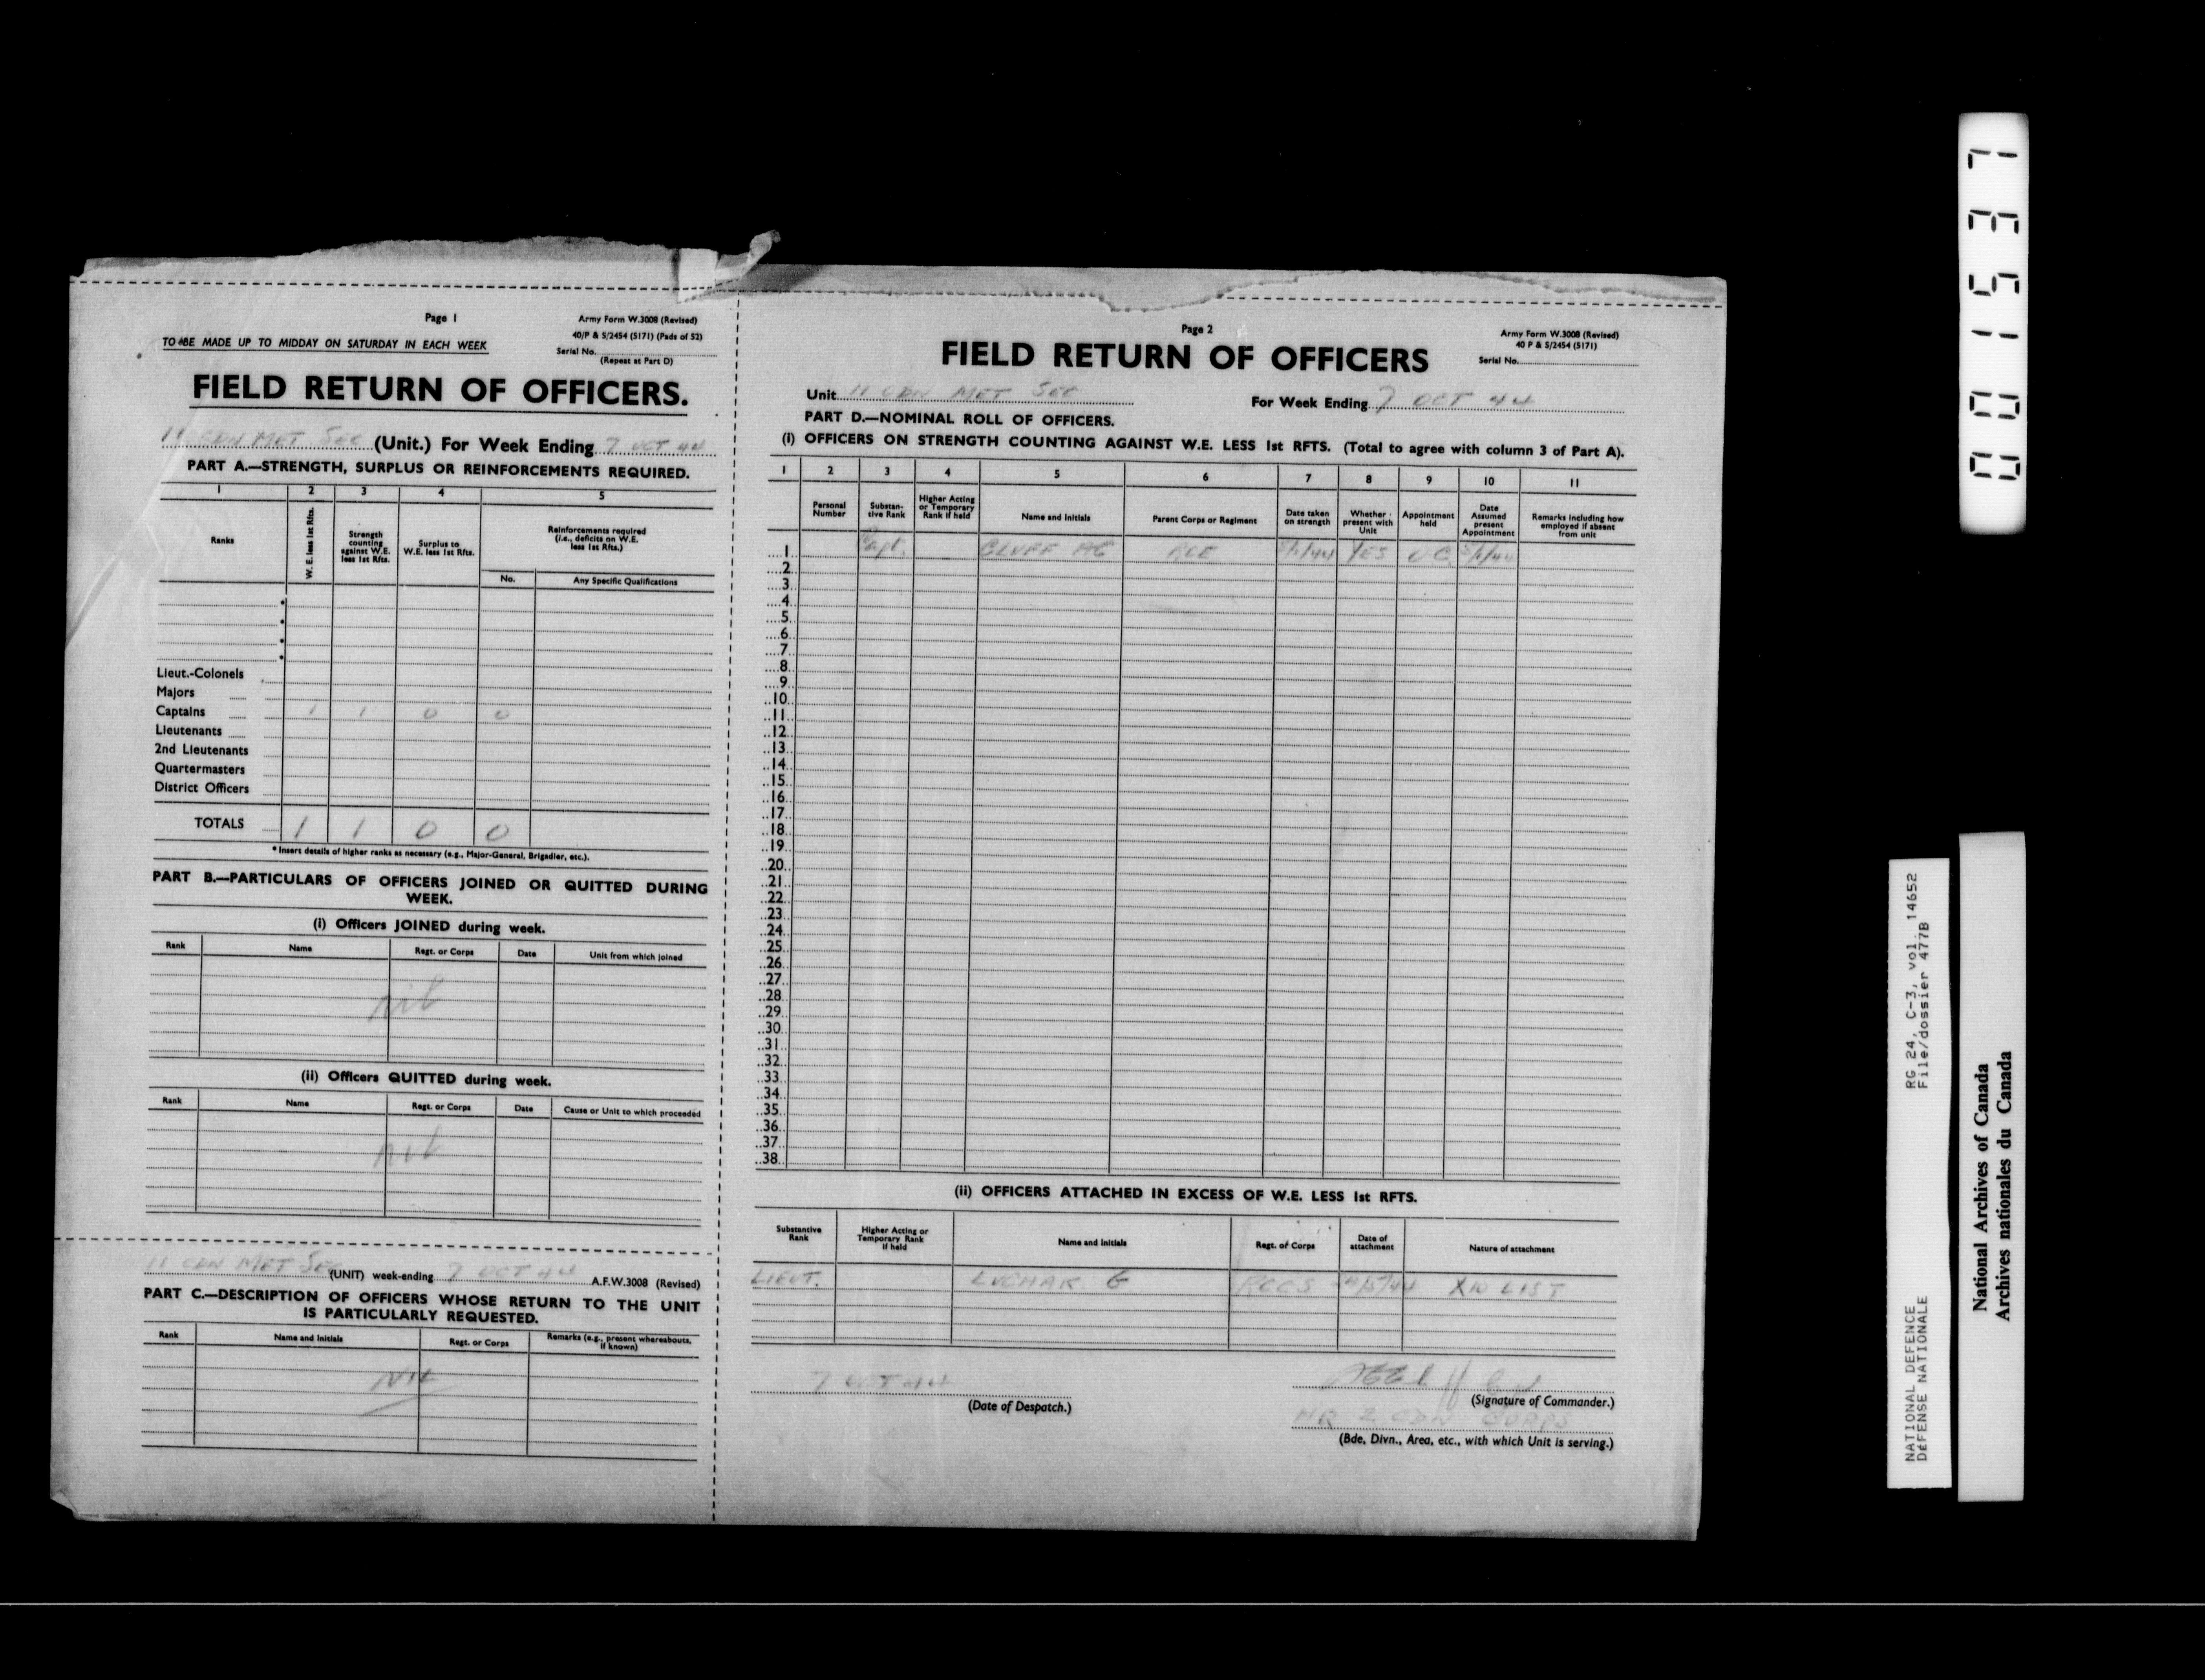 Page 1
Army Form W.3008 (Revised)
40/P & S/2454 (5171) (Pads of 52)
TO BE MADE UP TO MIDDAY ON SATURDAY IN EACH WEEK
Serial No.
(Repeat at Part D)
FIELD RETURN OF OFFICERS.
11 CDN MET SEC (Unit.) For Week Ending 7 OCT 44
PART A.—STRENGTH, SURPLUS OR REINFORCEMENTS REQUIRED.
1 2 3 4 5
Ranks
W. E. less 1st Rfts.
Strength counting against W.E. less 1st Rfts.
Surplus to W.E. less 1st Rfts.
Reinforcements required (i.e., deficits on W.E. less 1st Rfts.)
No. Any Specific Qualifications
Lieut.-Colonels
Majors
Captains 1 1 0 0
Lieutenants
2nd Lieutenants
Quartermasters
District Officers
TOTALS 1 1 0 0
* Insert details of higher ranks as necessary (e.g., Major-General, Brigadier, etc.).
PART B.—PARTICULARS OF OFFICERS JOINED OR QUITTED DURING
WEEK.
(i) Officers JOINED during week.
Rank Name Regt. or Corps Date Unit from which joined
nil
(ii) Officers QUITTED during week.
Rank Name Regt. or Corps Date Cause or Unit to which proceeded
nil
11 CDN MET SEC (UNIT) week-ending 7 OCT 44 A.F.W.3008 (Revised)
PART C.—DESCRIPTION OF OFFICERS WHOSE RETURN TO THE UNIT
IS PARTICULARLY REQUESTED.
Rank Name and Initials Regt. or Corps Remarks (e.g., present whereabouts, if known)
Nil
Page 2
Army Form W.3008 (Revised)
40 P & S/2454 (5171)
Serial No.
FIELD RETURN OF OFFICERS
Unit 11 CDN MET SEC For Week Ending 7 OCT 44
PART D.—NOMINAL ROLL OF OFFICERS.
(I) OFFICERS ON STRENGTH COUNTING AGAINST W.E. LESS 1st RFTS. (Total to agree with column 3 of Part A).
1 2 3 4 5 6 7 8 9 10 11
Personal Number
Substantive Rank
Higher Acting or Temporary Rank if held
Name and Initials
Parent Corps or Regiment
Date taken on strength
Whether present with Unit
Appointment held
Date Assumed present Appointment
Remarks including how employed if absent from unit
1 Capt. CLUFF AG RCE YES OC
2
3
4
5
6
7
8
9
10
11
12
13
14
15
16
17
18
19
20
21
22
23
24
25
26
27
28
29
30
31
32
33
34
35
36
37
38
(ii) OFFICERS ATTACHED IN EXCESS OF W.E. LESS 1st RFTS.
Substantive Rank
Higher Acting or Temporary Rank if held
Name and Initials
Regt. or Corps
Date of attachment
Nature of attachment
LIEUT. LUCHAK G RCCS X10 LIST
7 OCT 44
(Date of Despatch.)
(Signature of Commander.)
HQ 2 CDN CORPS
(Bde, Divn., Area, etc., with which Unit is serving.)
001537
NATIONAL DEFENCE RG 24, C-3, vol. 14652
DÉFENSE NATIONALE File/dossier 477B
National Archives of Canada
Archives nationales du Canada